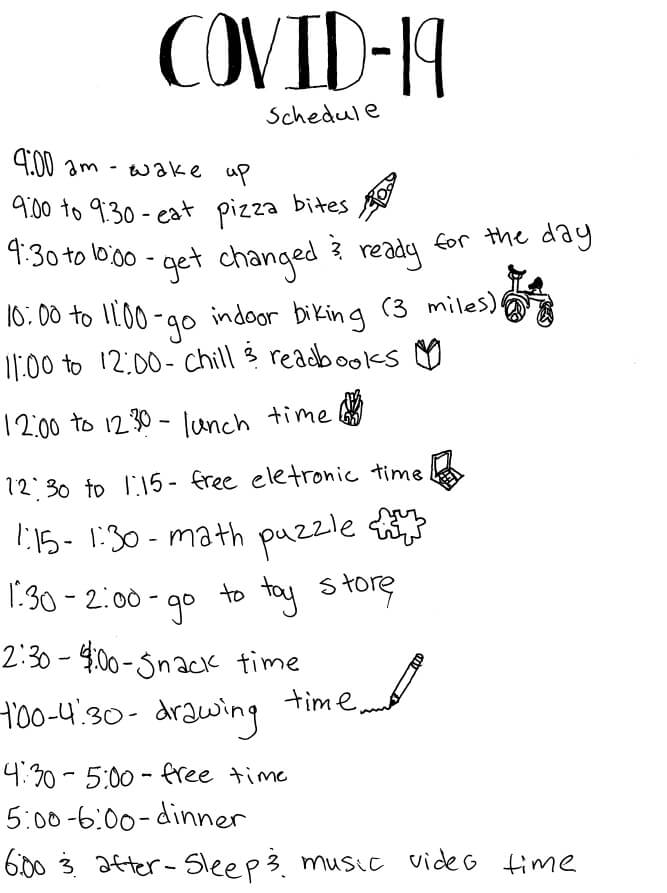 COVID-19
schedule
9:00 am - wake up
9:00 to 9:30 - eat pizza bites
9:30 to 10:00 - get changed & ready for the day
10:00 to 11:00 - go indoor biking (3 miles)
11:00 to 12:00 - chill & readbooks
12:00 to 12:30 - lunch time
12:30 to 1:15 - free eletronic time
1:15 - 1:30 - math puzzle
1:30 - 2:00 - go to toy store
2:30 - 4:00 - snack time
4:00 - 4:30 - drawing time
4:30 - 5:00 - free time
5:00 - 6:00 - dinner
6:00 & after - sleep & music video time